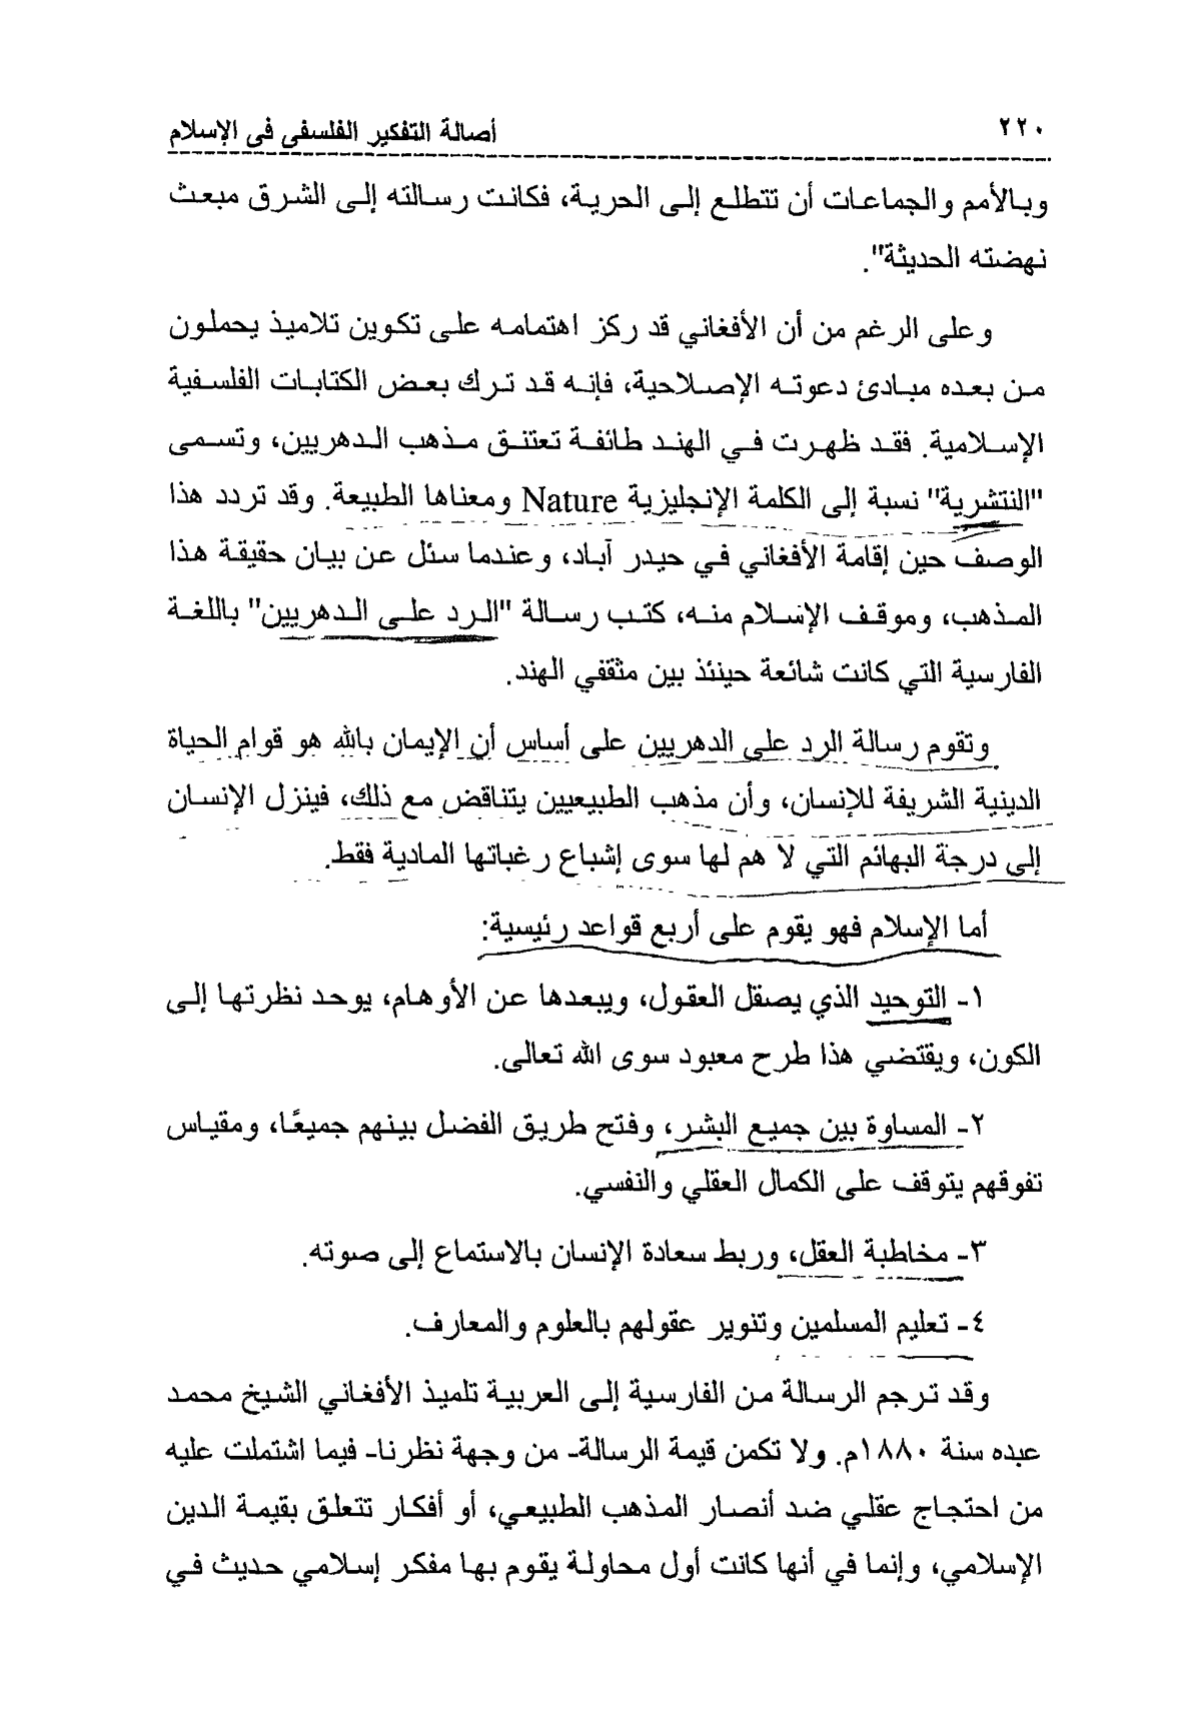 ٢٢٠
أصالة التفكير الفلسفى فى الإسلام
وبالأمم والجماعات أن تتطلع إلى الحرية، فكانت رسالته إلى الشرق مبعث
نهضته الحديثة".
وعلى الرغم من أن الأفغاني قد ركز اهتمامه على تكوين تلاميذ يحملون
من بعده مبادئ دعوته الإصلاحية، فإنه قد ترك بعض الكتابات الفلسفية
الإسلامية. فقد ظهرت في الهند طائفة تعتنق مذهب الدهريين، وتسمى
"النتشرية" نسبة إلى الكلمة الإنجليزية Nature ومعناها الطبيعة. وقد تردد هذا
الوصف حين إقامة الأفغاني في حيدر آباد، وعندما سئل عن بيان حقيقة هذا
المذهب، وموقف الإسلام منه، كتب رسالة "الرد على الدهريين" باللغة
الفارسية التي كانت شائعة حينئذ بين مثقفي الهند.
وتقوم رسالة الرد على الدهريين على أساس أن الإيمان بالله هو قوام الحياة
الدينية الشريفة للإنسان، وأن مذهب الطبيعيين يتناقض مع ذلك، فينزل الإنسان
إلى درجة البهائم التي لا هم لها سوى إشباع رغباتها المادية فقط.
أما الإسلام فهو يقوم على أربع قواعد رئيسية:
١- التوحيد الذي يصقل العقول، ويبعدها عن الأوهام، يوحد نظرتها إلى
الكون، ويقتضي هذا طرح معبود سوى الله تعالى.
٢- المساوة بين جميع البشر، وفتح طريق الفضل بينهم جميعًا، ومقياس
تفوقهم يتوقف على الكمال العقلي والنفسي.
٣- مخاطبة العقل، وربط سعادة الإنسان بالاستماع إلى صوته.
٤- تعليم المسلمين وتنوير عقولهم بالعلوم والمعارف.
وقد ترجم الرسالة من الفارسية إلى العربية تلميذ الأفغاني الشيخ محمد
عبده سنة ١٨٨٠م. ولا تكمن قيمة الرسالة- من وجهة نظرنا- فيما اشتملت عليه
من احتجاج عقلي ضد أنصار المذهب الطبيعي، أو أفكار تتعلق بقيمة الدين
الإسلامي، وإنما في أنها كانت أول محاولة يقوم بها مفكر إسلامي حديث في